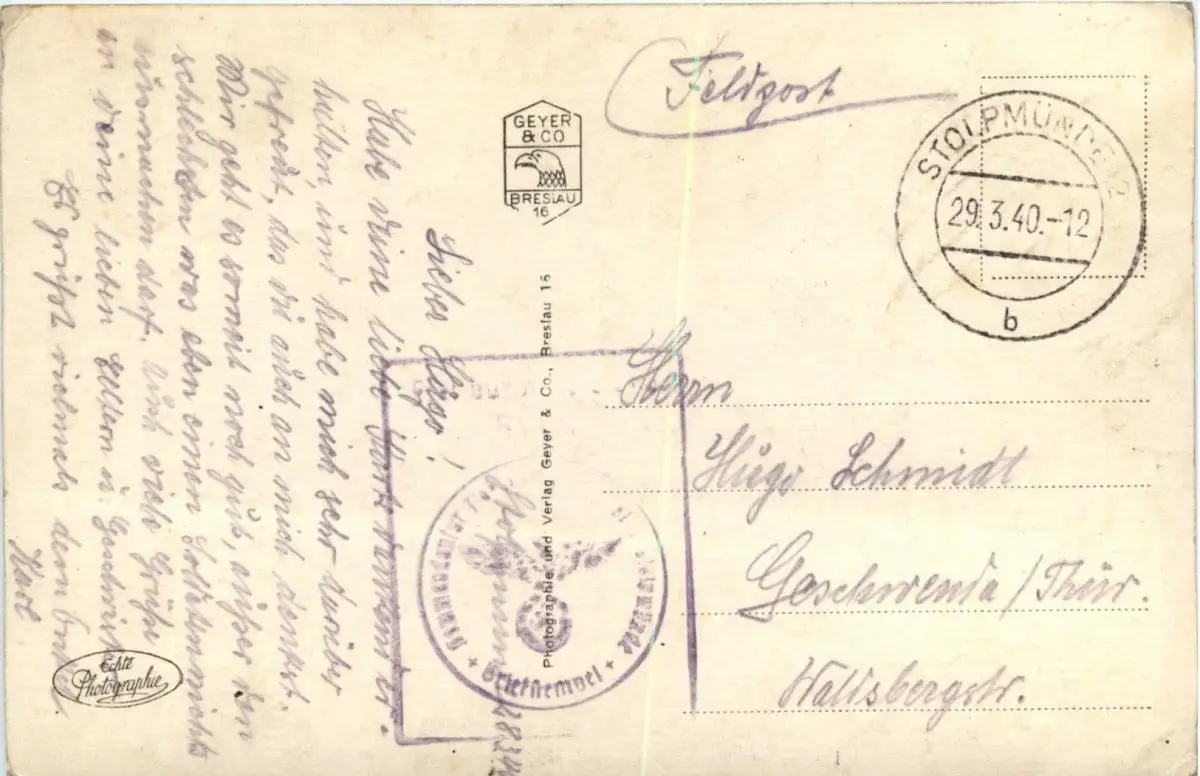 Feldpost
STOLPMÜNDE 2
29.3.40.-12
b
GEYER
& CO
BRESLAU
16
Photographie und Verlag Geyer & Co., Breslau 16
Herrn
Hugo Schmidt
Geschwenda/Thür.
Stolpmünde 28.3.40
Lieber Hugo!
Habe deine liebe Karte dankend er-
halten, und habe mich sehr darüber
gefreut, das du auch an mich denkst.
Mir geht es soweit noch gut, außer den
schlechten was eben einen Soldaten nichts
ausmachen darf. Auch viele Grüße
an deine lieben Eltern u. Geschwister
Es grüßt vielmals dein Onkel
Karl
Kommandantur
Briefstempel
Echte
Photographie